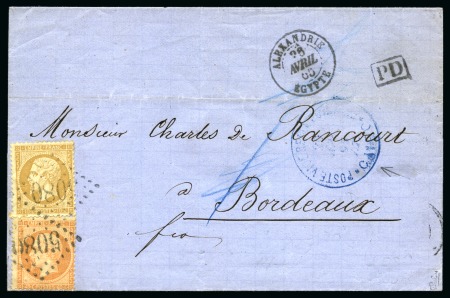 ALEXANDRIE
26
AVRIL
65
EGYPTE
PD
Monsieur Charles de Rancourt
à Bordeaux
POSTE
5080
5080